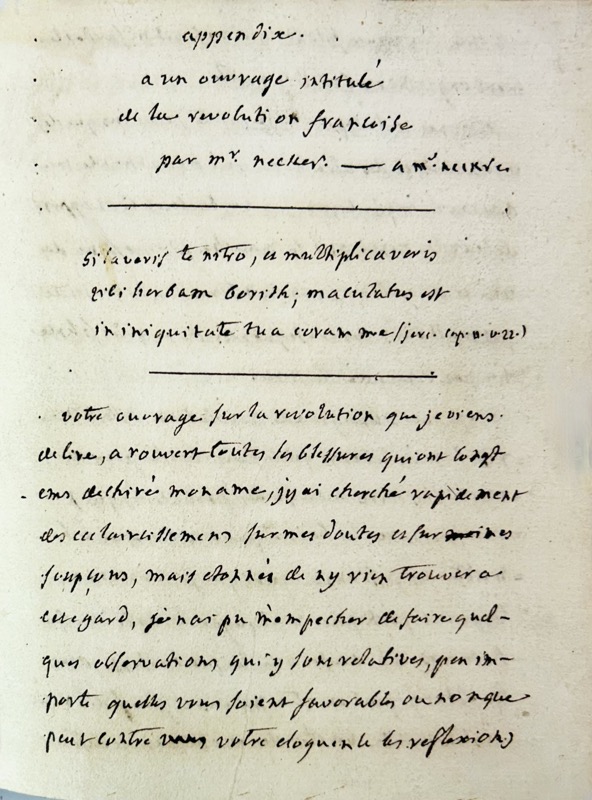 appendix.
a un ouvrage intitulé
de la revolution françoise
par mr. necker. — a mr. necker
si laveris te nitro, et multiplicaveris
tibi herbam borith; maculatus est
in iniquitate tua coram me (jere. cap. II. v. 22.)
votre ouvrage sur la revolution que je viens
de lire, a rouvert toutes les blessures qui ont longt
ems dechiré mon ame, jy ai cherché rapidement
des ecclaircissemens sur mes doutes et sur mes
soupçons, mais etonné de ny rien trouver a
cet egard, je nai pu m'empecher de faire quel-
ques observations qui y sont relatives, peu im-
porte quelles vous soient favorables ou non que
peut contre votre eloquence les reflexions